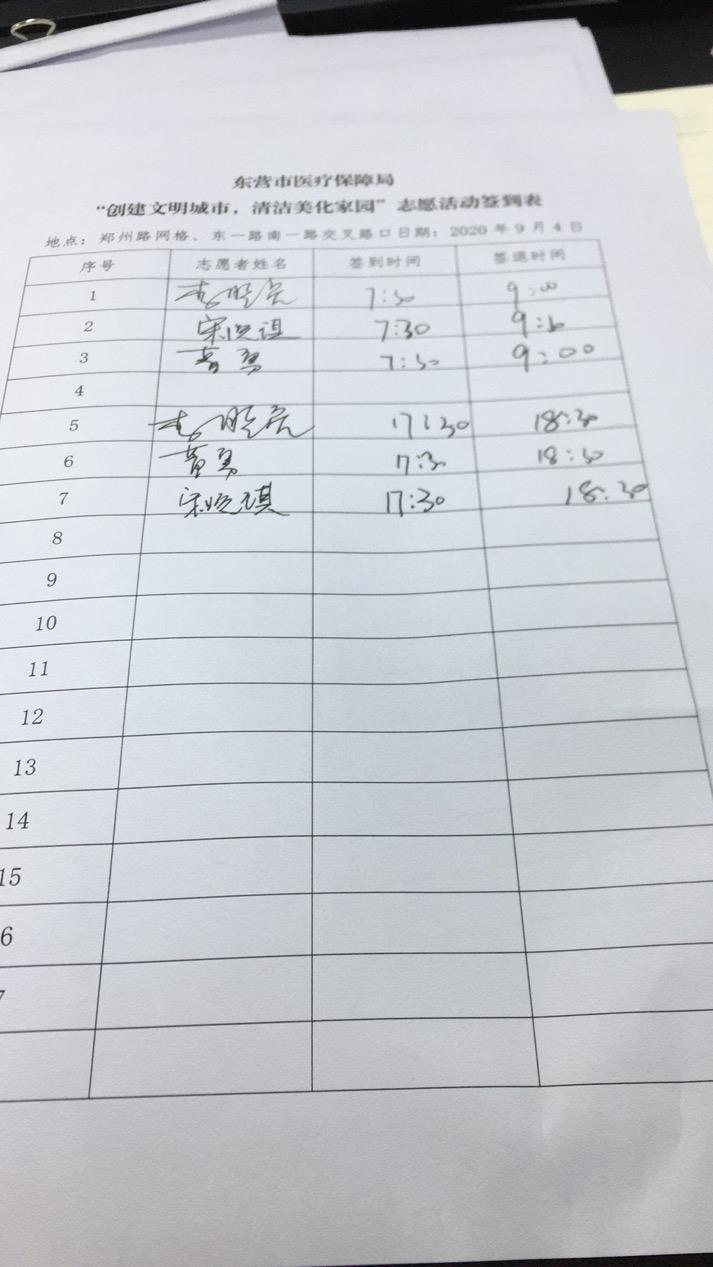 东营市医疗保障局
“创建文明城市，清洁美化家园”志愿活动签到表
地点：郑州路网格、东一路南一路交叉路口日期：2020年9月4日
序号 志愿者姓名 签到时间 签退时间
1 7:30 9:00
2 7:30
3 黄勇 7:30 9:00
4
5 17:30 18:30
6 黄勇 18:30
7 宋晓琪 17:30 18:30
8
9
10
11
12
13
14
15
6
7